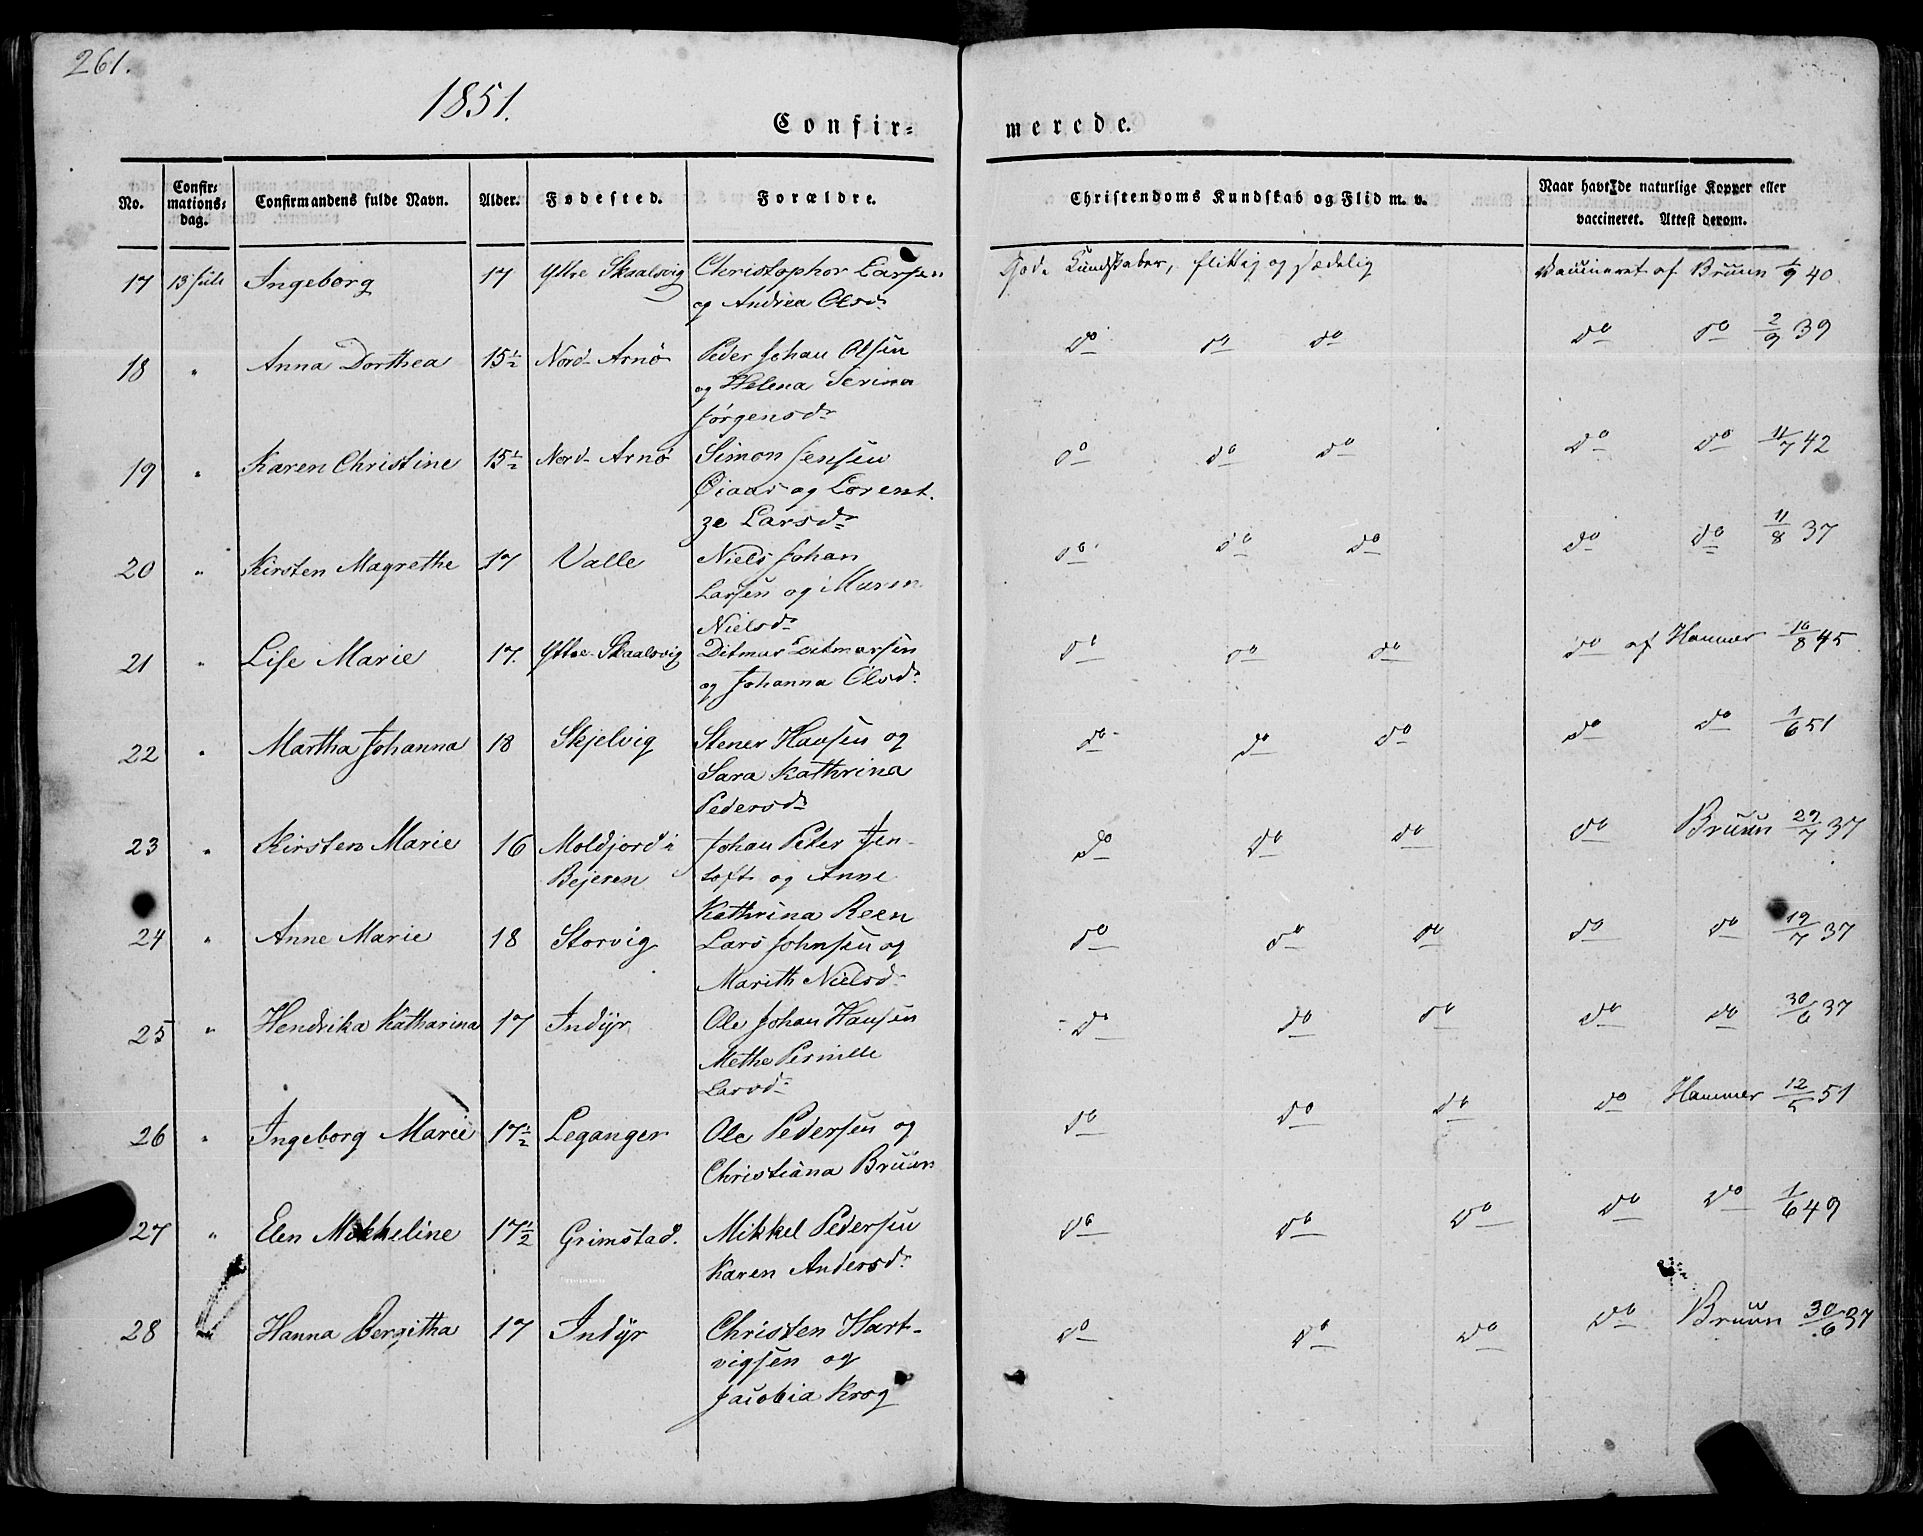 261.
1851.
Confir-
merede.
No.
Confir-
mations-
dag.
Confirmandens fulde Navn.
Alder.
Fødested.
Forældre.
Christendoms Kundskab og Flid m. v.
Naar havt de naturlige Kopper eller
vaccineret. Attest derom.
17 13 Juli Ingeborg 17 Ytre Skaalsvig Christopher Larsen
og Andrea Olsdr
Gode Kundskaber, flittig og sædelig Vaccineret af Bruun 1/9 40.
18 " Anna Dorthea 15½ Nord-Arnø Peder Johan Olsen
og Helena Serina
Jørgensdr
do do do do do 2/9 39
19 " Karen Christine 15½ Nord-Arnø Simon Jensen
Øiaas og Lorent-
ze Larsdr
do do do do do 11/7 42
20 " Kirsten Magrethe 17 Valle Niels Johan
Larsen og Maren
Nielsdr
do do do do do 11/8 37
21 " Lise Marie 17. Ytre-Skaalsvig Ditmar Ditmarsen
og Johanna Olsdr
do do do do af Hammer 10/8 45
22 " Martha Johanna 18 Skjelvig Stener Hansen og
Sara Kathrina
Pedersdr
do do do do do 1/6 51
23 " Kirsten Marie 16 Moldjord i Johan Peter Jen-
Bejeren toft og Anne
Kathrina Reen
do do do do Bruun 29/7 37
24 " Anne Marie 18 Storvig Lars Johnsen og
Marith Nielsd
do do do do do 19/7 37
25 " Hendrika Katharina 17 Indyr Ole Johan Hansen
Methe Pernille
Larsdr
do do do do do 30/6 37
26 " Ingeborg Marie 17½ Leganger Ole Pedersen og
Christiana Bruun
do do do do Hammer 12/5 51
27 " Elen Mikkeline 17½ Grimstad. Mikkel Pedersen
Karen Andersdr
do do do do do 1/6 49
28 Hanna Bergitha 17 Indyr Christen Hart-
vigsen og
Jacobia Krog
do do do do Bruun 30/6 37